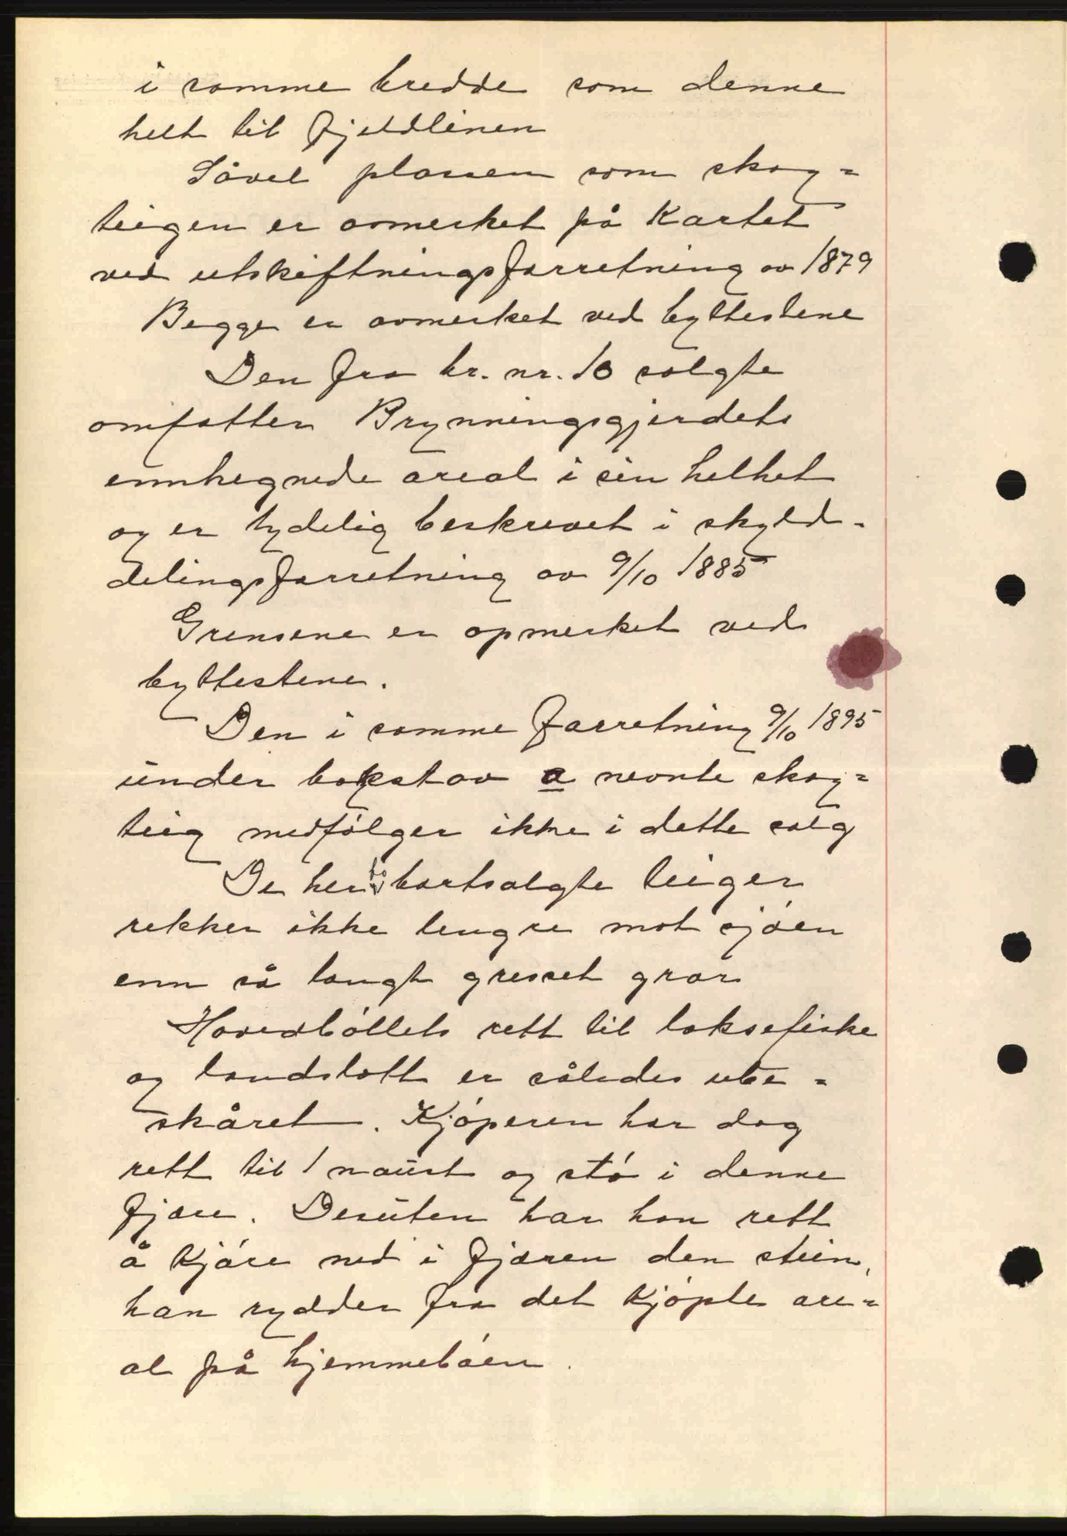 i samme bredde som denne
helt til fjeldlinen
Såvel plassen som skog=
teigen er avmerket på Kartet
ved utskiftningsforretning av 1879
Begge er avmerket ved byttestene
Den fra br. nr. 10 solgte
omfatter Brynningsgjerdets
innhegnede areal i sin helhet
og er tydelig beskrevet i skyld-
delingsforretning av 9/10 1885
Grensene er opmerket ved
byttestene.
Den i samme forretning 9/10 1895
under bokstav a nevnte skog=
teig medfølger ikke i dette salg
De her bortsolgte teiger
rekker ikke lengre mot sjøen
enn så langt gresset gror
Hovedbøllets rett til laksefiske
og landslott er således ube=
skåret. Kjøperen har dog
rett til 1 naust og stø i denne
fjære. Desuten har han rett
å kjøre ned i fjæren den stein,
han rydder fra det kjøpte are=
al på hjemmebøen.